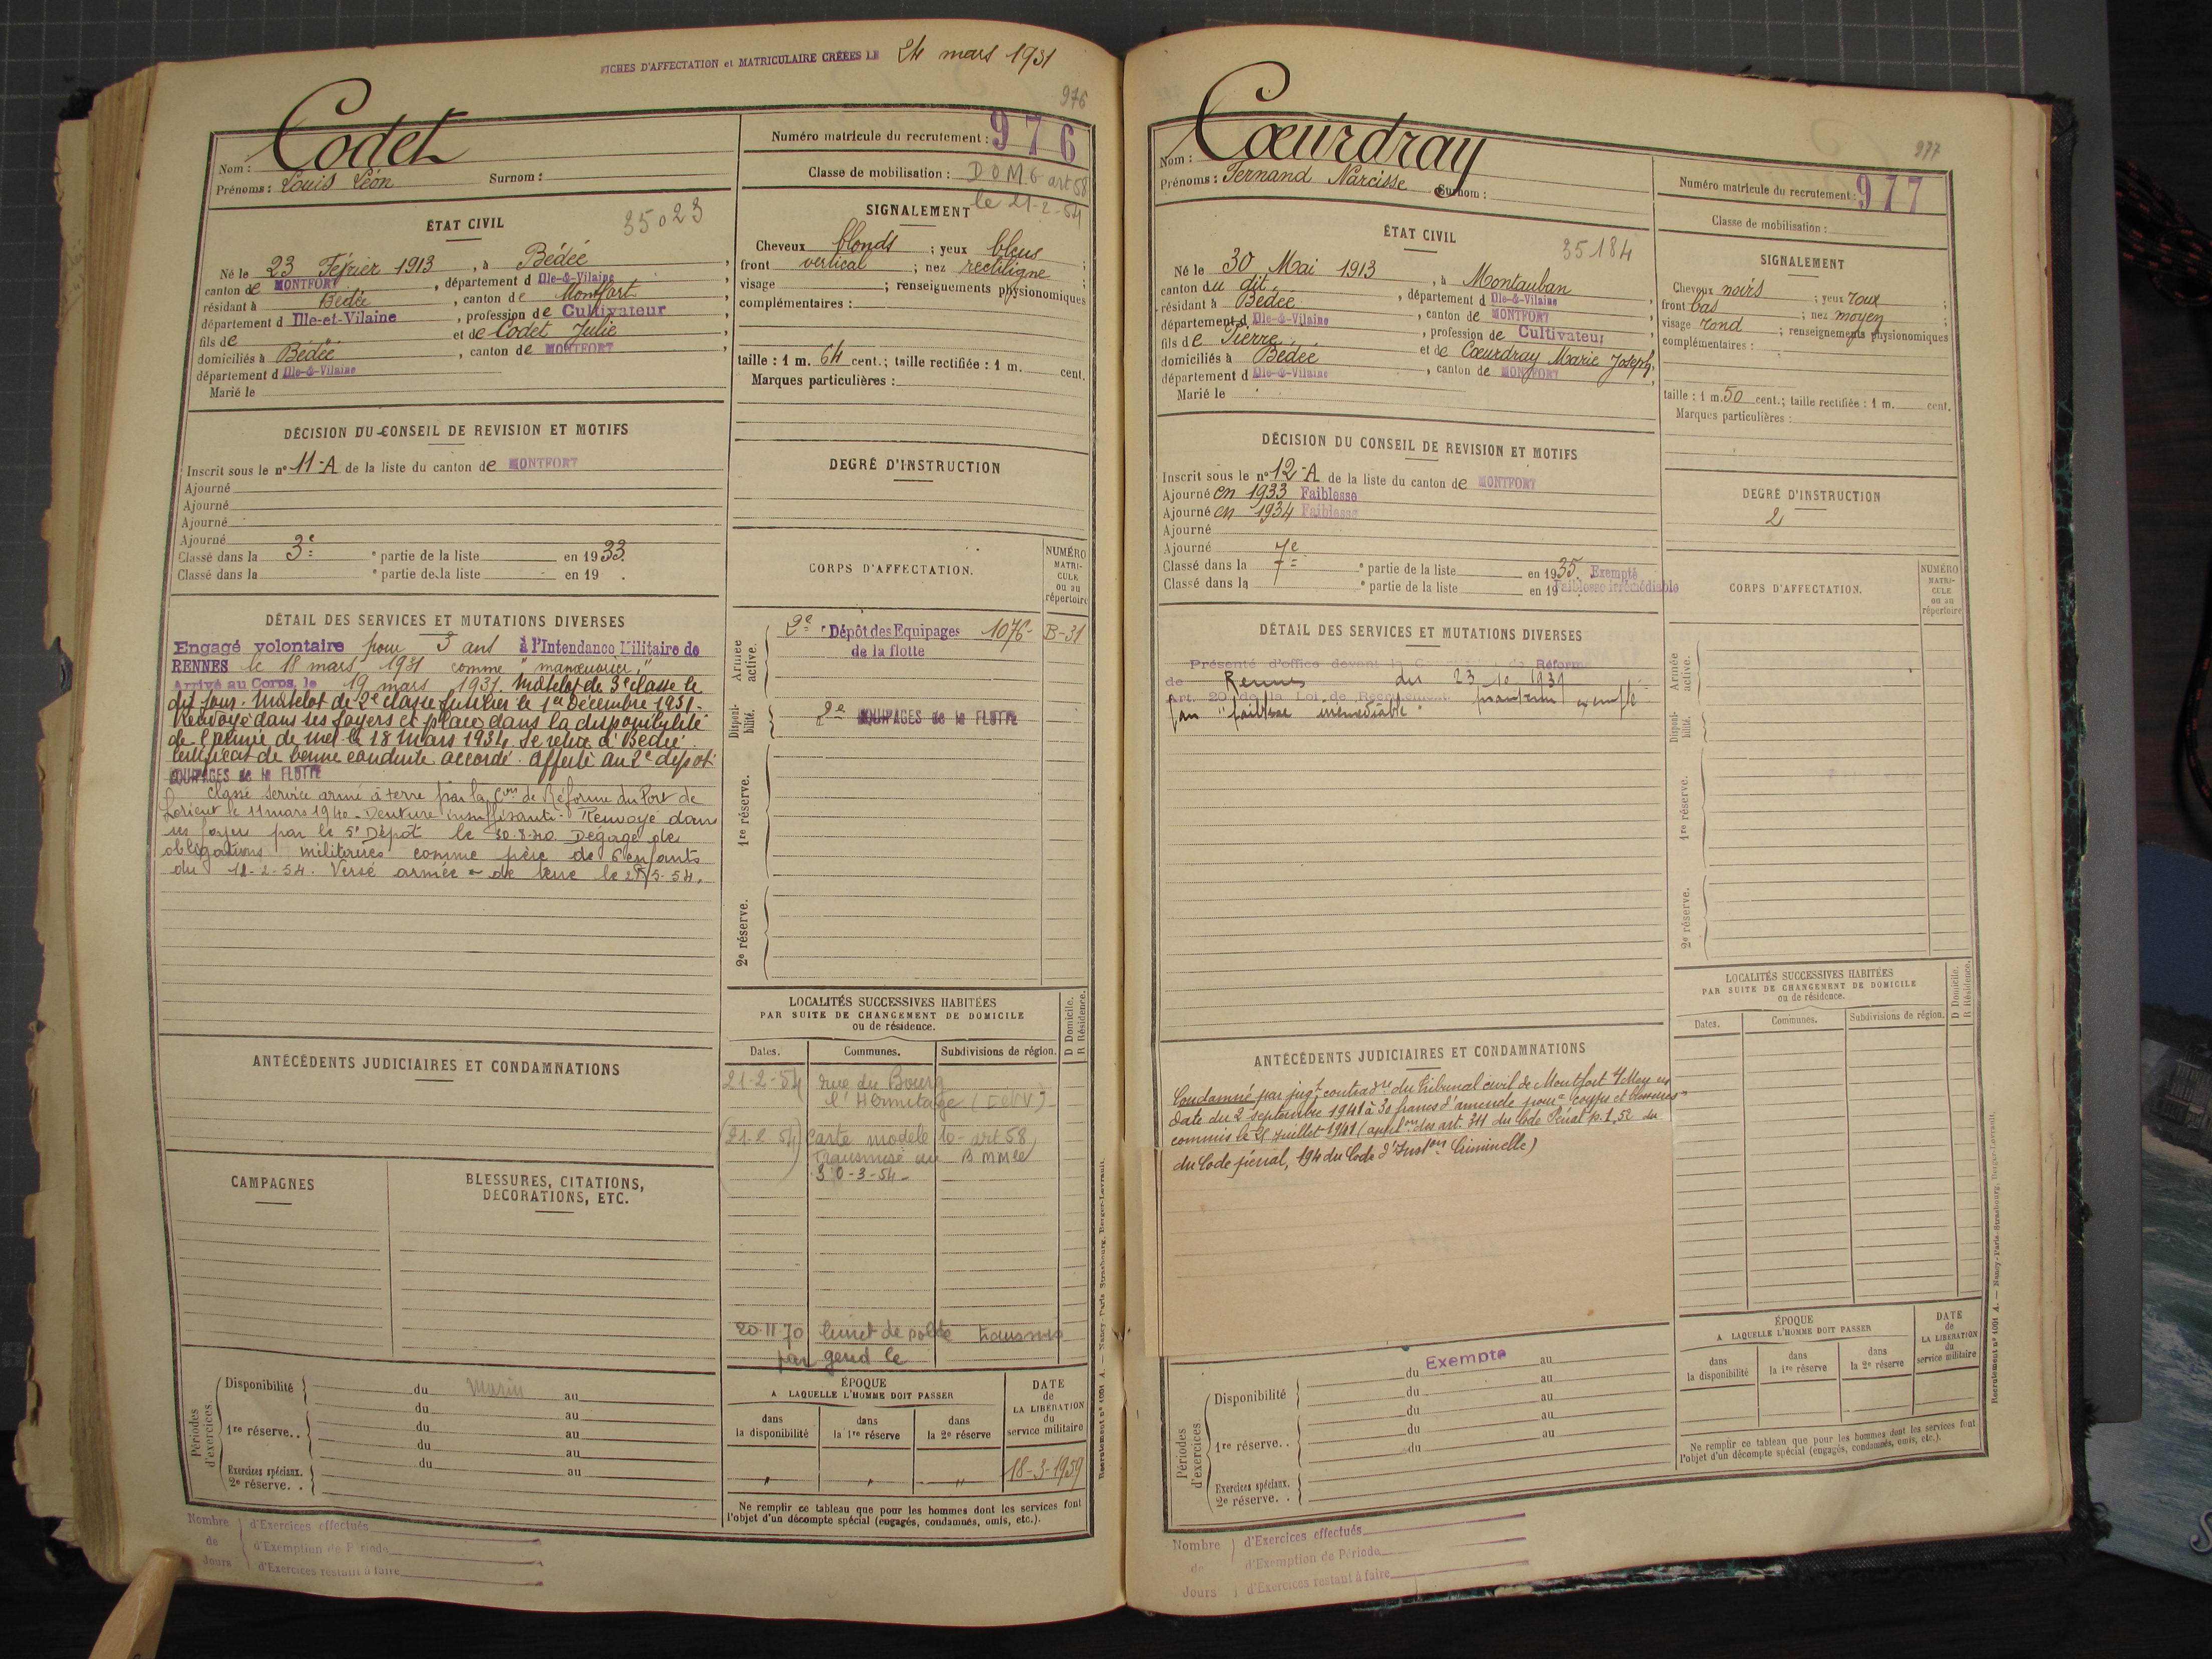 FICHES D'AFFECTATION et MATRICULAIRE CRÉÉES LE 24 mars 1931
976
Nom : Codet
Prénoms : Louis Léon Surnom :
Numéro matricule du recrutement : 976
Classe de mobilisation : D O M G art 58
le 21-2-54
ÉTAT CIVIL
35023
Né le 23 Février 1913, à Bédée,
canton de MONTFORT, département d Ille-&-Vilaine,
résidant à Bédée, canton de Montfort,
département d Ille-et-Vilaine, profession de Cultivateur
fils de et de Codet Julie
domiciliés à Bédée, canton de MONTFORT,
département d Ille-&-Vilaine
Marié le
SIGNALEMENT
Cheveux blonds ; yeux bleus ;
front vertical ; nez rectiligne ;
visage ; renseignements physionomiques
complémentaires :
taille : 1 m. 64 cent.; taille rectifiée : 1 m. cent.
Marques particulières :
DÉCISION DU CONSEIL DE REVISION ET MOTIFS
Inscrit sous le n° 11-A de la liste du canton de MONTFORT
Ajourné
Ajourné
Ajourné
Ajourné
Classé dans la 3e partie de la liste en 1933.
Classé dans la e partie de la liste en 19 .
DEGRÉ D'INSTRUCTION
DÉTAIL DES SERVICES ET MUTATIONS DIVERSES
Engagé volontaire pour 3 ans à l'Intendance Militaire de
RENNES le 18 mars 1931 comme "manœuvrier"
Arrivé au Corps, le 19 mars 1931. Matelot de 3e classe le
dit jour. Matelot de 2e classe fusilier le 1er Décembre 1931.
Renvoyé dans ses foyers et placé dans la disponibilité
de l'armée de mer le 18 mars 1934. Se retire à Bédée.
Certificat de bonne conduite accordé. Affecté au 2e dépôt
EQUIPAGES de la FLOTTE
Classé service armé à terre par la Con de Réforme du Port de
Lorient le 11 mars 1940. Denture insuffisante. Renvoyé dans
ses foyers par le 5e Dépôt le 30.8.40 Dégagé des
obligations militaires comme père de 6 enfants
du 12-2-54. Versé armée de terre le 5-54.
CORPS D'AFFECTATION.
NUMÉRO
MATRI-
CULE
ou au
répertoire
Armée
active.
2e Dépôt des Equipages 1076- B-31
de la flotte
Disponi-
bilité.
2e EQUIPAGES de la FLOTTE
1re réserve.
2e réserve.
LOCALITÉS SUCCESSIVES HABITÉES
PAR SUITE DE CHANGEMENT DE DOMICILE
ou de résidence.
D Domicile.
R Résidence.
Dates. Communes. Subdivisions de région.
21-2-54 rue du Bourg
l'Hermitage (I et V)
(21-2 54) Carte modèle 10- art 58
Transmise au B
30-3-54-
20-11-70
par gend le
ANTÉCÉDENTS JUDICIAIRES ET CONDAMNATIONS
CAMPAGNES
BLESSURES, CITATIONS,
DÉCORATIONS, ETC.
Périodes
d'exercices.
Disponibilité du Marin au
du au
1re réserve. . du au
du au
Exercices spéciaux. du au
2e réserve. .
ÉPOQUE
A LAQUELLE L'HOMME DOIT PASSER
dans
la disponibilité
dans
la 1re réserve
dans
la 2e réserve
DATE
de
LA LIBÉRATION
du
service militaire
" " " 18-3-1959
Ne remplir ce tableau que pour les hommes dont les services font
l'objet d'un décompte spécial (engagés, condamnés, omis, etc.).
Nombre
de
Jours
d'Exercices effectués
d'Exemption de Période
d'Exercices restant à faire
Recrutement n° 1091 A. — Nancy-Paris-Strasbourg, Berger-Levrault.
977
Nom : Cœurdray
Prénoms : Fernand Narcisse Surnom :
Numéro matricule du recrutement : 977
Classe de mobilisation :
ÉTAT CIVIL
35184
Né le 30 Mai 1913, à Montauban
canton du dit, département d Ille-&-Vilaine,
résidant à Bédée, canton de MONTFORT,
département d Ille-&-Vilaine, profession de Cultivateur
fils de Pierre et de Cœurdray Marie Joseph,
domiciliés à Bédée, canton de MONTFORT,
département d Ille-&-Vilaine
Marié le
SIGNALEMENT
Cheveux noirs ; yeux roux ;
front bas ; nez moyen ;
visage rond ; renseignements physionomiques
complémentaires :
taille : 1 m. 50 cent.; taille rectifiée : 1 m. cent.
Marques particulières :
DÉCISION DU CONSEIL DE REVISION ET MOTIFS
Inscrit sous le n° 12-A de la liste du canton de MONTFORT
Ajourné en 1933 Faiblesse
Ajourné en 1934 Faiblesse
Ajourné
Ajourné
Classé dans la 7e partie de la liste en 1935. Exempté
Classé dans la e partie de la liste en 19 Faiblesse irrémédiable
DEGRÉ D'INSTRUCTION
2
DÉTAIL DES SERVICES ET MUTATIONS DIVERSES
Présenté d'office devant la Commission de Réforme
de Rennes du 23 10 1939
Art. 20 de la Loi de Recrutement maintenu exempté
pour "faiblesse irrémédiable"
CORPS D'AFFECTATION.
NUMÉRO
MATRI-
CULE
ou au
répertoire
Armée
active.
Disponi-
bilité.
1re réserve.
2e réserve.
LOCALITÉS SUCCESSIVES HABITÉES
PAR SUITE DE CHANGEMENT DE DOMICILE
ou de résidence.
D Domicile.
R Résidence.
Dates. Communes. Subdivisions de région.
ANTÉCÉDENTS JUDICIAIRES ET CONDAMNATIONS
Condamné par jugt contradre du Tribunal civil de Montfort s/Meu en
date du 2 septembre 1941 à 30 francs d'amende pour "coups et blessures"
commis le 25 juillet 1941 (applon des art. 311 du Code Pénal p.1, 52 du
du Code pénal, 194 du Code d'Inston Criminelle)
Périodes
d'exercices
Disponibilité du Exempté au
du au
1re réserve. . du au
du au
du au
Exercices spéciaux.
2e réserve. .
ÉPOQUE
A LAQUELLE L'HOMME DOIT PASSER
dans
la disponibilité
dans
la 1re réserve
dans
la 2e réserve
DATE
de
LA LIBÉRATION
du
service militaire
Ne remplir ce tableau que pour les hommes dont les services font
l'objet d'un décompte spécial (engagés, condamnés, omis, etc.).
Nombre
de
Jours
d'Exercices effectués
d'Exemption de Période
d'Exercices restant à faire
Recrutement n° 1091 A. — Nancy-Paris-Strasbourg, Berger-Levrault.